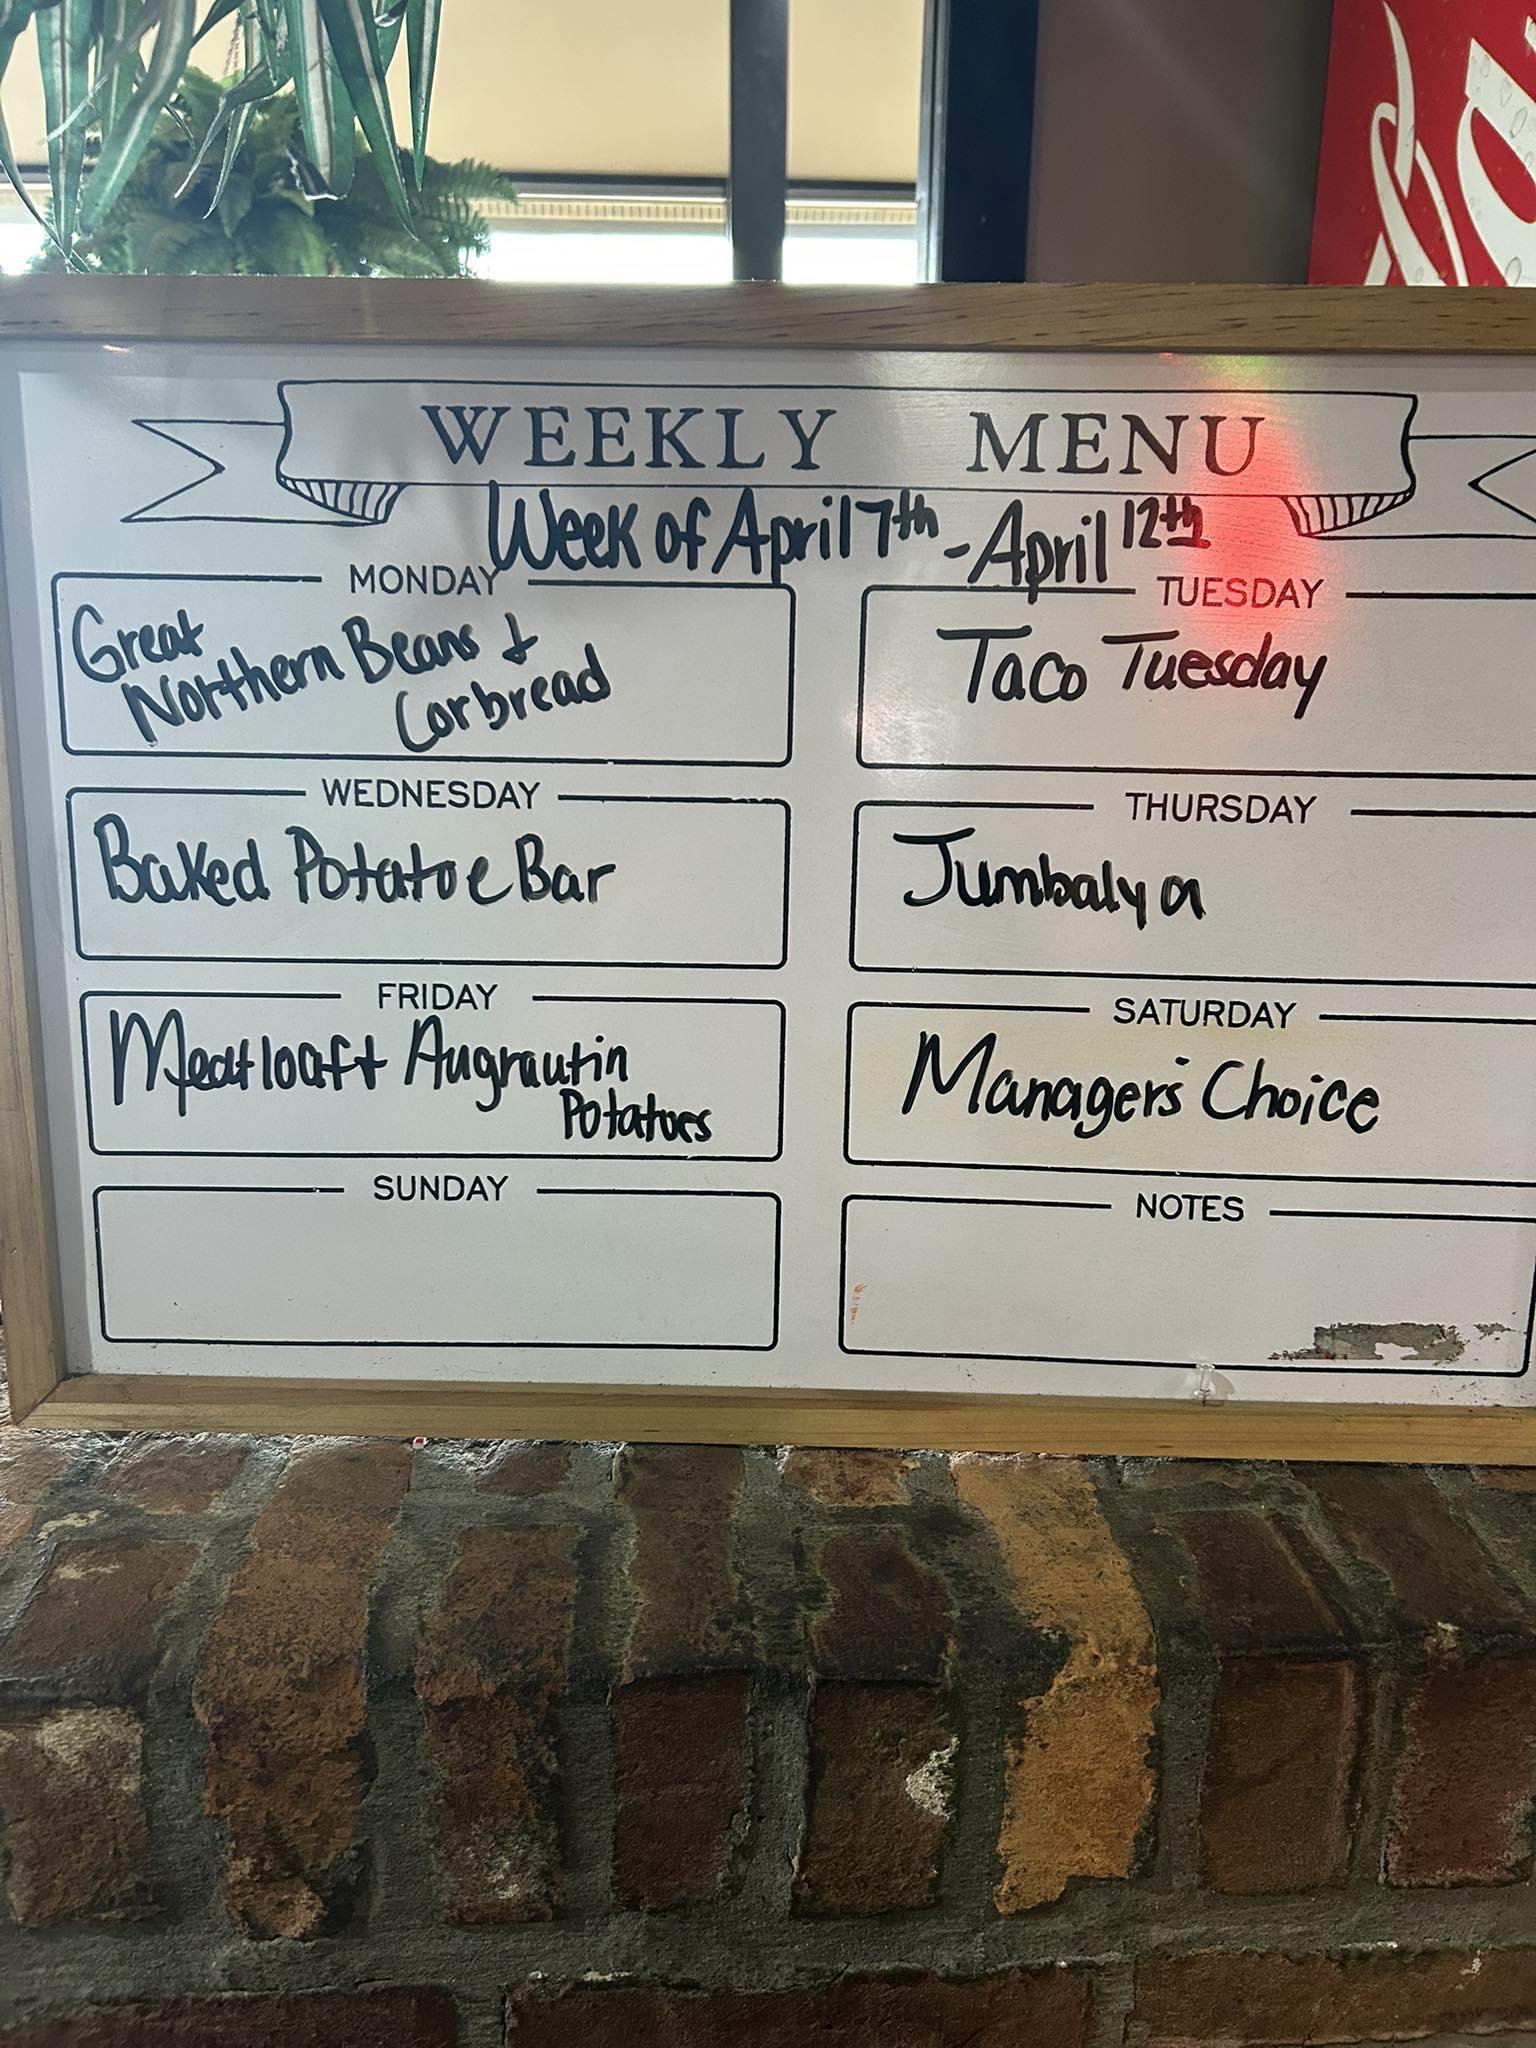 WEEKLY MENU
Week of April 7th - April 12th
MONDAY
Great
Northern Beans &
Corbread
TUESDAY
Taco Tuesday
WEDNESDAY
Baked Potatoe Bar
THURSDAY
Jumbalya
FRIDAY
Meatloaf & Augrautin
Potatoes
SATURDAY
Manager's Choice
SUNDAY
NOTES